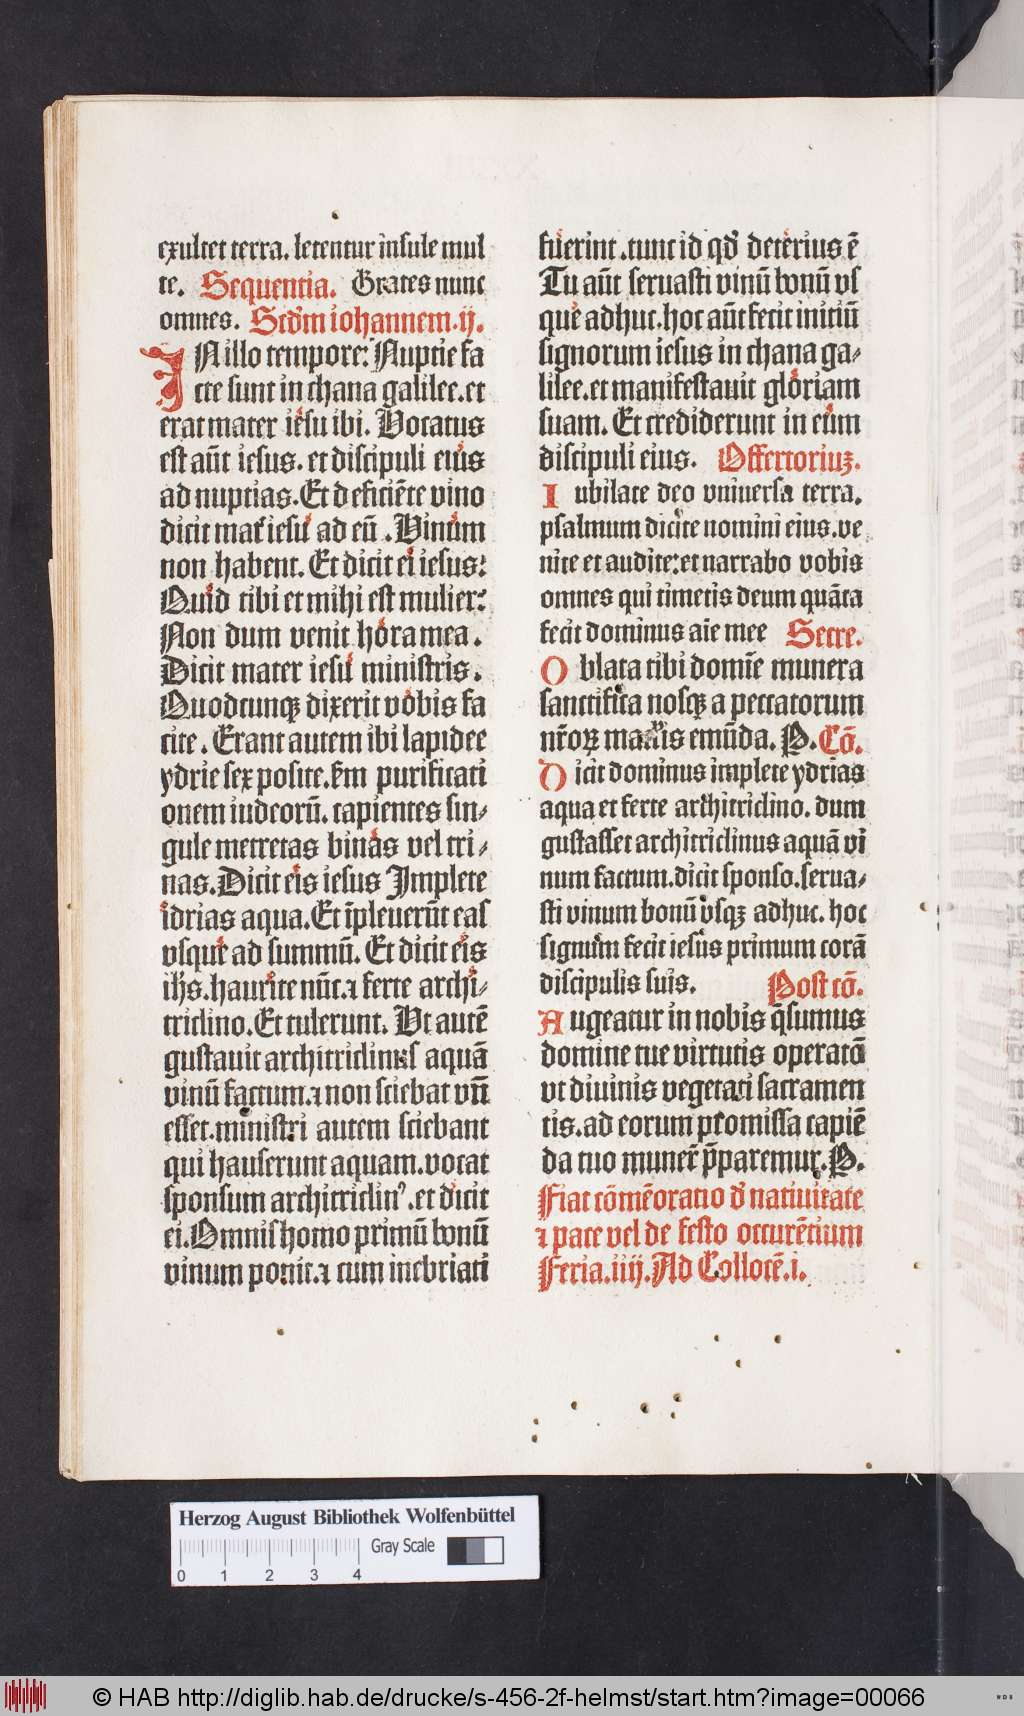 exultet terra. letentur insule mul
te. Sequentia. Grates nunc
omnes. Scd̄m iohannem .ij.
IN illo tempore: Nuptie fa
cte sunt in chana galilee. et
erat mater iesu ibi. Vocatus
est aūt iesus. et discipuli eius
ad nuptias. Et deficiēte vino
dicit mat̄ iesu ad eū. Vinum
non habent. Et dicit ei iesus:
Quid tibi et mihi est mulier:
Non dum venit hora mea.
Dicit mater iesu ministris.
Quodcunqꝫ dixerit vobis fa
cite. Erant autem ibi lapidee
ydrie sex posite. sm̄ purificati
onem iudeorū. capientes sin⸗
gule metretas binas vel tri⸗
nas. Dicit eis iesus Implete
idrias aqua. Et īpleuerūt eas
vsque ad summū. Et dicit eis
ihs̄. haurite nūc. ⁊ ferte archi⸗
triclino. Et tulerunt. Vt autē
gustauit architriclinus aquā
vinū factum. ⁊ non sciebat vn̄
esset. ministri autem sciebant
qui hauserunt aquam. vocat
sponsum architriclin⁹. et dicit
ei. Omnis homo primū bonū
vinum ponit. ⁊ cum inebriati
fuerint. tunc id qd̄ deterius ē
Tu aūt seruasti vinū bonū vs
que adhuc. hoc aūt fecit initiū
signorum iesus in chana ga⸗
lilee. et manifestauit gloriam
suam. Et crediderunt in eum
discipuli eius. Offertoriuꝫ.
Iubilate deo vniuersa terra.
psalmum dicite nomini eius. ve
nite et audite: et narrabo vobis
omnes qui timetis deum quāta
fecit dominus aīe mee Secre.
Oblata tibi domīe munera
sanctifica nosqꝫ a peccatorum
nr̄oꝝ maculis emūda. P. Cō.
Dicit dominus implete ydrias
aqua et ferte architriclino. dum
gustasset architriclinus aquā vi
num factum. dicit sponso. serua⸗
sti vinum bonū vsqꝫ adhuc. hoc
signum fecit iesus primum corā
discipulis suis. Post cō.
Augeatur in nobis q̄sumus
domine tue virtutis operatō
vt diuinis vegetati sacramen
tis. ad eorum promissa capiē
da tuo munere p̄paremur. P.
Fiat cōmēoratio d̄ natiuitate
⁊ pace vel de festo occurētium
Feria. iiij. Ad Collocē. i.
Herzog August Bibliothek Wolfenbüttel
Gray Scale
0 1 2 3 4
© HAB http://diglib.hab.de/drucke/s-456-2f-helmst/start.htm?image=00066